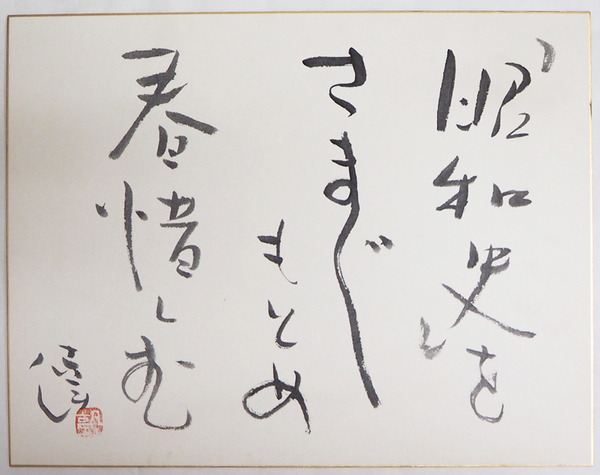 「昭和史」を
さま〴〵
もとめ
春惜しむ